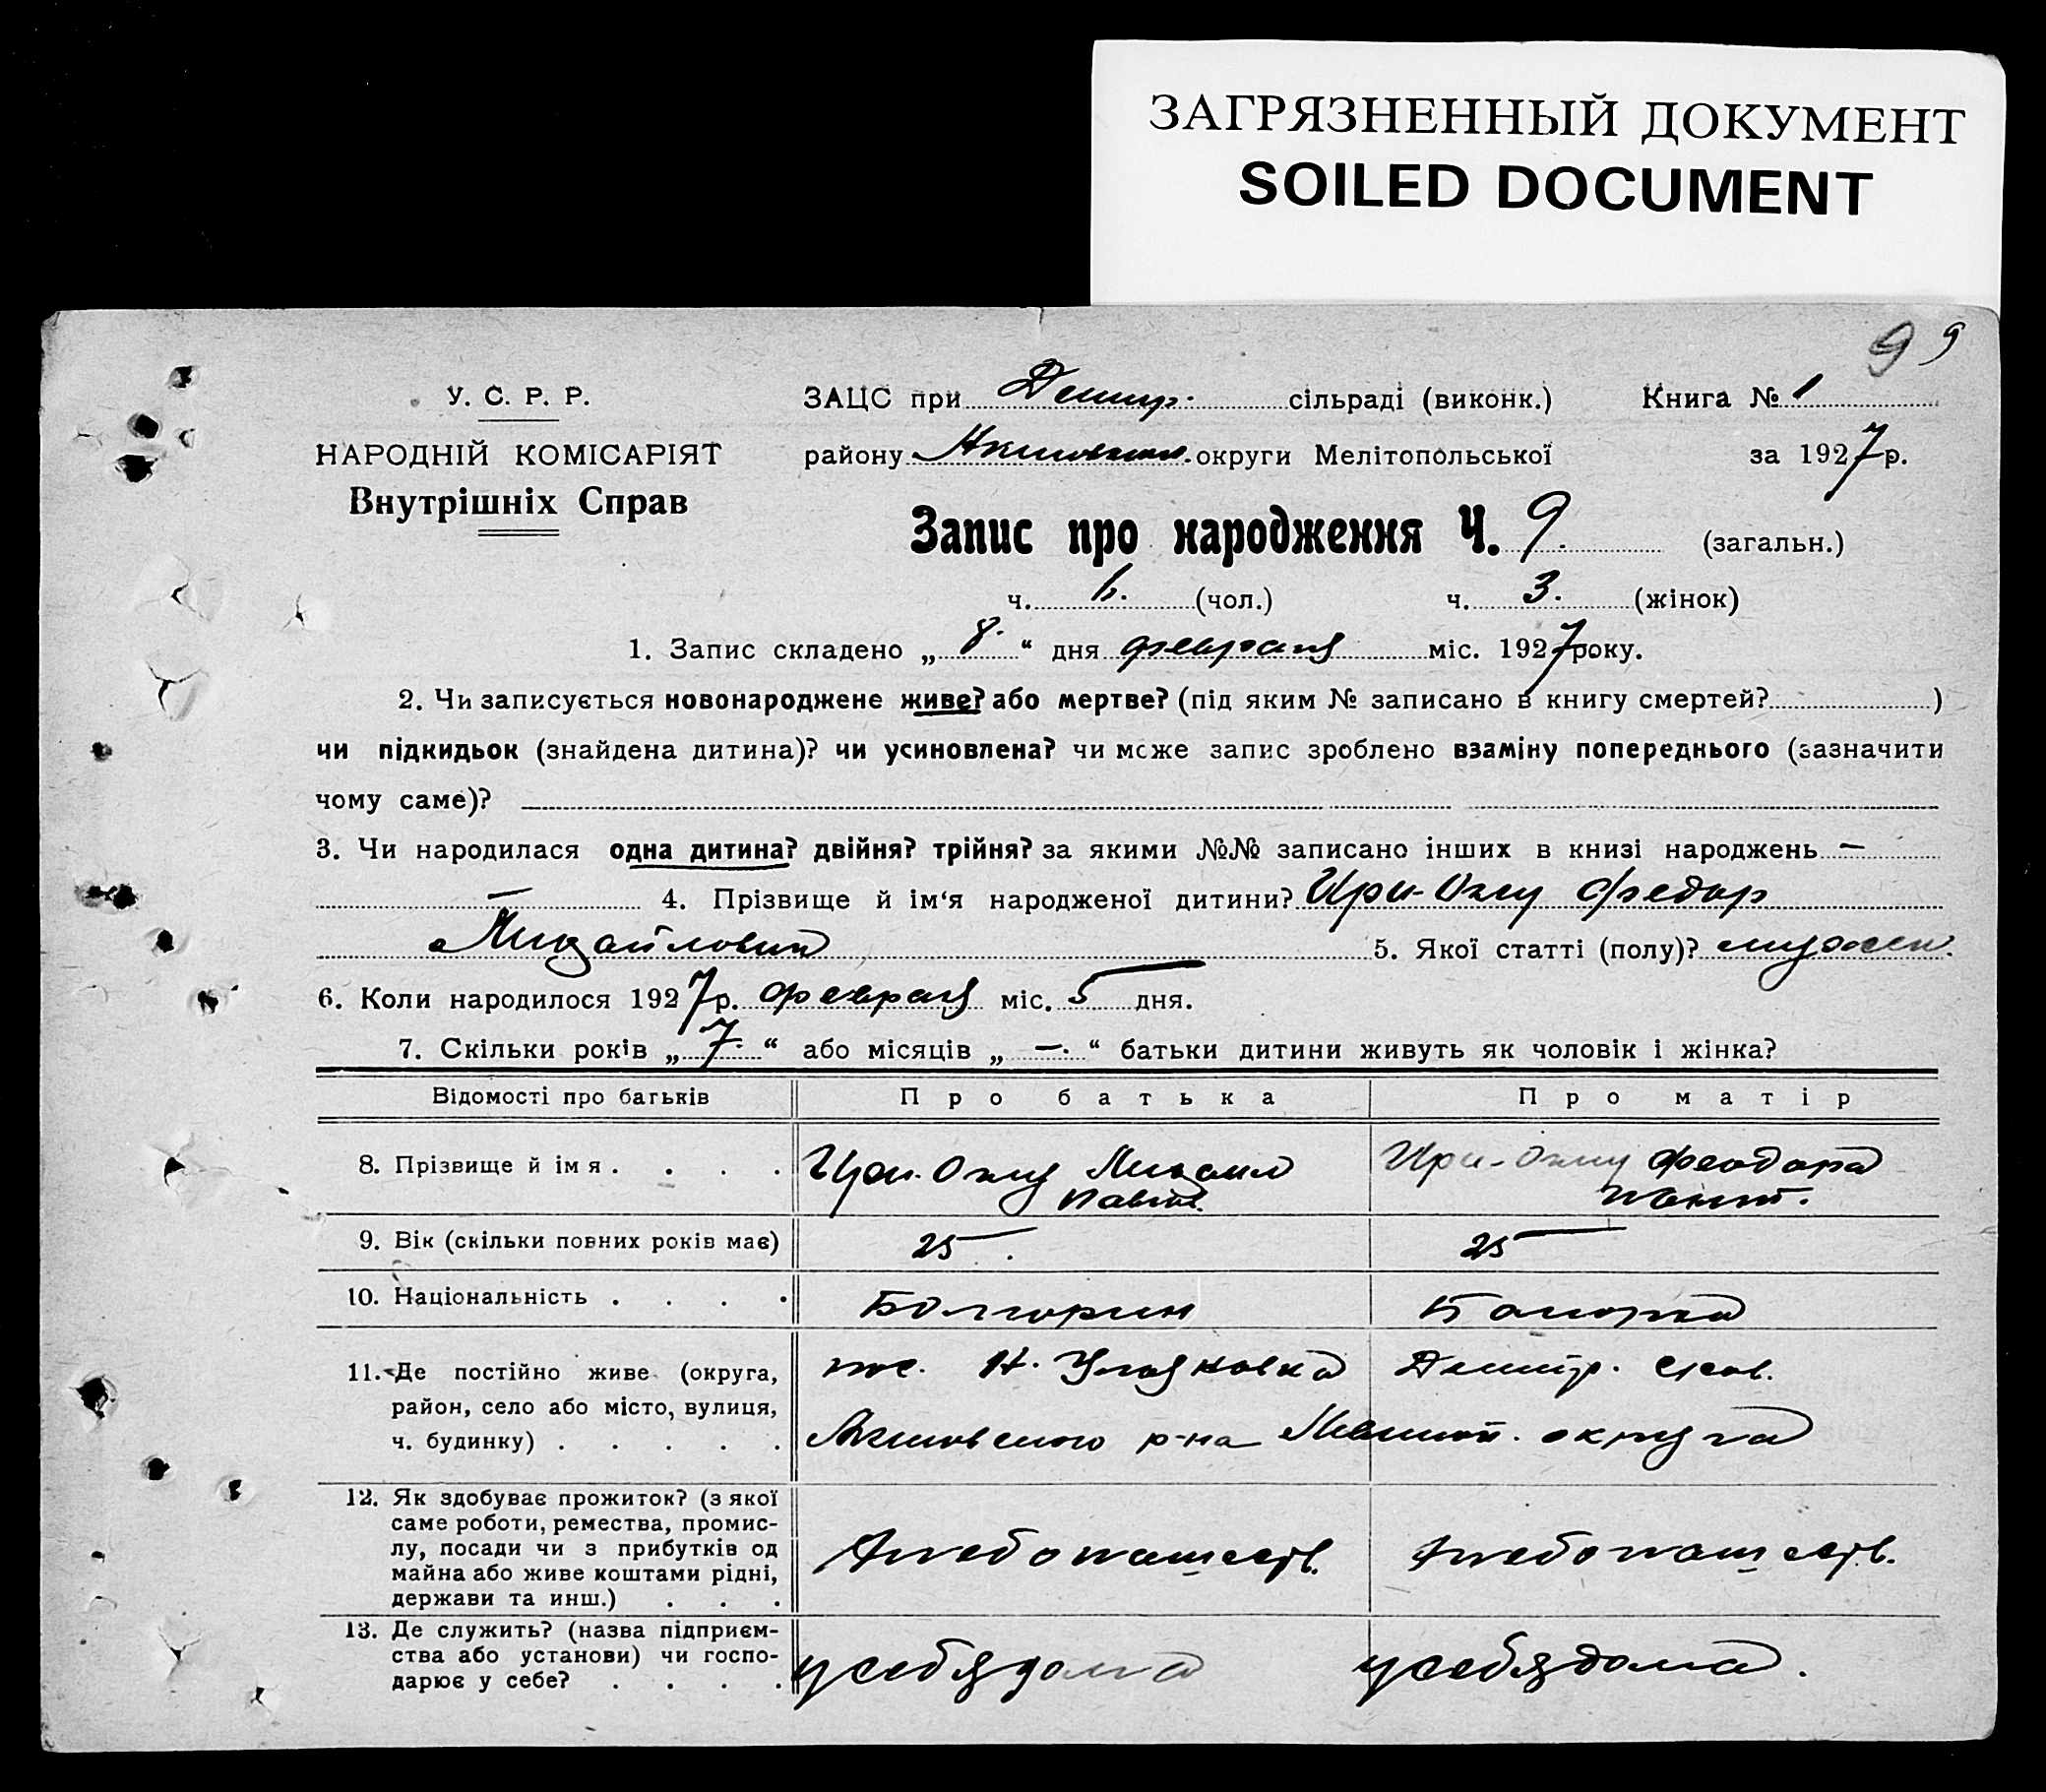 ЗАГРЯЗНЕННЫЙ ДОКУМЕНТ
SOILED DOCUMENT
9 9
У. С. Р. Р.
НАРОДНІЙ КОМІСАРІЯТ
Внутрішніх Справ
ЗАЦС при Демир. сільраді (виконк.) Книга № 1
району округи Мелітопольської за 1927 р.
Запис про народження Ч. 9. (загальн.)
ч. 6. (чол.) ч. 3. (жінок)
1. Запис складено „ 8. “ дня февраля міс. 1927 року.
2. Чи записується новонароджене живе? або мертве? (під яким № записано в книгу смертей? )
чи підкидьок (знайдена дитина)? чи усиновлена? чи може запис зроблено взаміну попереднього (зазначити
чому саме)?
3. Чи народилася одна дитина? двійня? трійня? за якими №№ записано інших в книзі народжень —
— 4. Прізвище й ім‘я народженої дитини? Федор
Михайлович 5. Якої статті (полу)? мужск.
6. Коли народилося 1927 р. февраля міс. 5 дня.
7. Скільки років „ 7. “ або місяців „ —. “ батьки дитини живуть як чоловік і жінка?
Відомості про батьків Про батька Про матір
8. Прізвище й імя . . . . Михаил Феодора
Павл.
9. Вік (скільки повних років має) 25. 25
10. Національність . . . . Болгарин Болгарка
11. Де постійно живе (округа, пос. Н. Димитр. сков.
район, село або місто, вулиця,
ч. будинку) . . . . . Акимовского р-на Мелитоп. округа
12. Як здобуває прожиток? (з якої
саме роботи, ремества, промис-
лу, посади чи з прибутків од Хлебопашеств. Хлебопашеств.
майна або живе коштами рідні,
держави та инш.) . . .
13. Де служить? (назва підприєм-
ства або установи) чи госпо- у себя дома у себя дома.
дарює у себе? . . . .